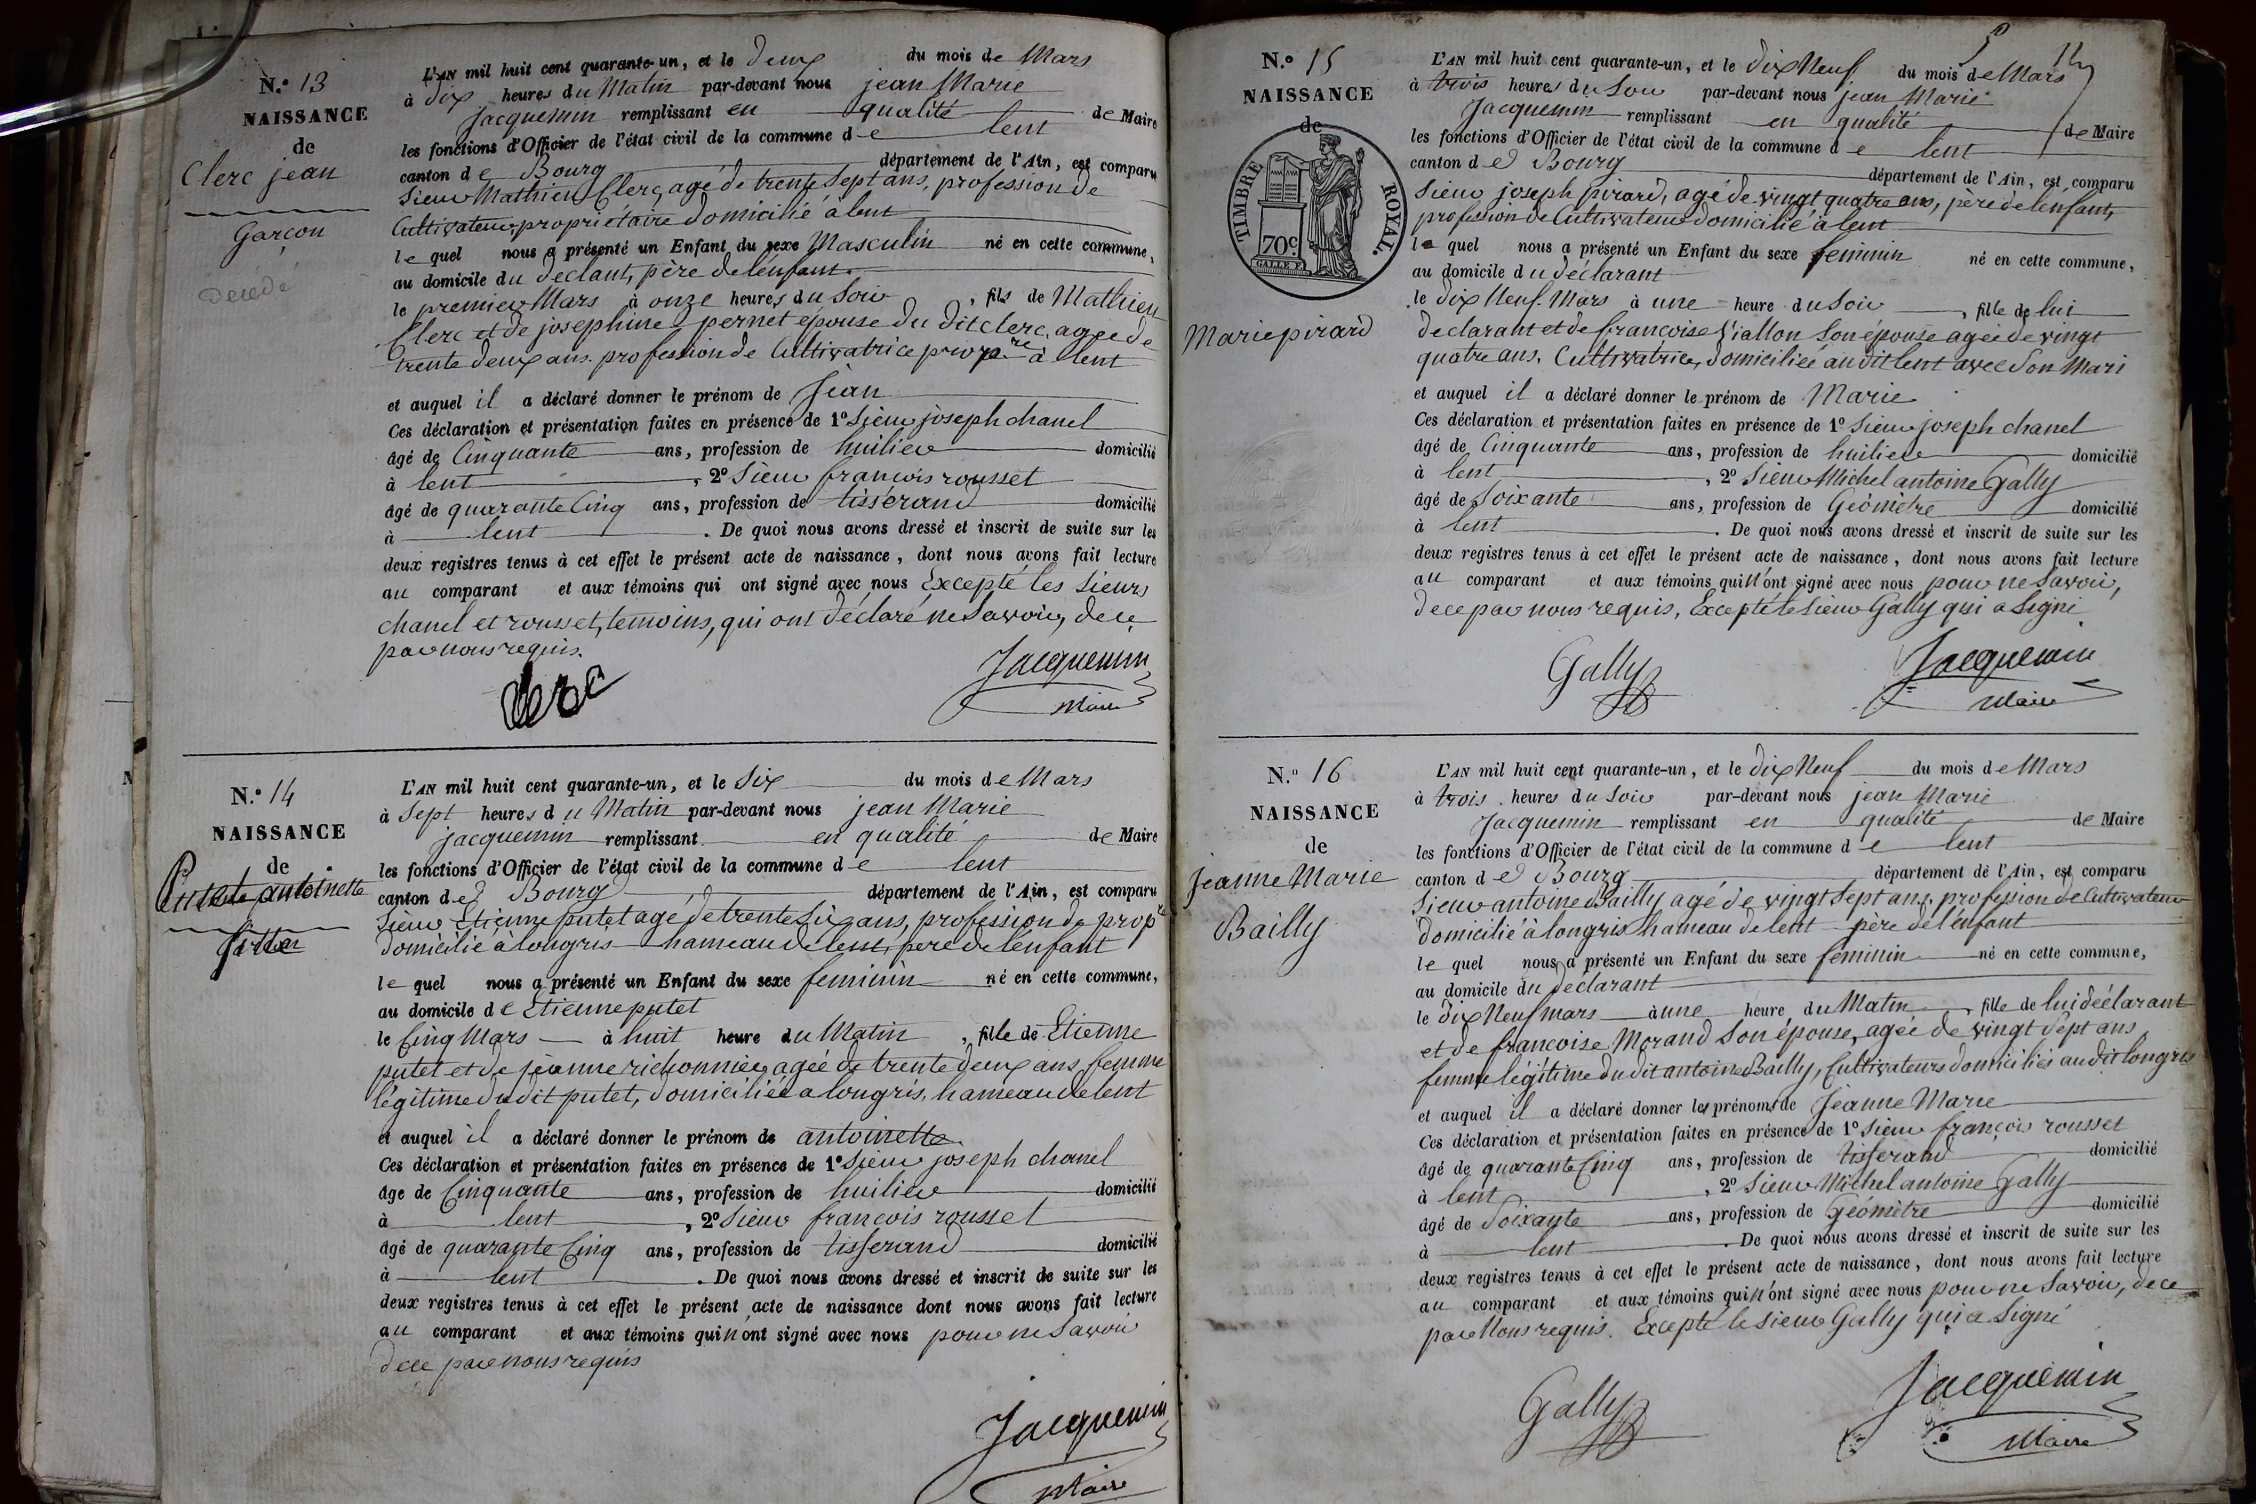 N.º 13
NAISSANCE
de
Clerc jean
Garçon
Décédé
L'AN mil huit cent quarante-un, et le deux du mois de Mars
à dix heures du Matin par-devant nous jean Marie
Jacquemin remplissant en qualité de Maire
les fonctions d'Officier de l'état civil de la commune de lent
canton de Bourg département de l'Ain, est comparu
Sieur Mathieu Clerc, agé de trente Sept ans, profession de
Cultivateur, propriétaire domicilié à lent
le quel nous a présenté un Enfant du sexe Masculin né en cette commune,
au domicile du déclant, père de l'enfant.
le premier Mars à onze heures du Soir, fils de Mathieu
Clerc et de josephine pernet épouse du dit clerc, agée de
trente deux ans. profession de Cultivatrice propre à lent
et auquel il a déclaré donner le prénom de Jean
Ces déclaration et présentation faites en présence de 1º Sieur joseph chanel
âgé de Cinquante ans, profession de huilier domicilié
à lent, 2º Sieur françois rousset
âgé de quarante Cinq ans, profession de tisserand domicilié
à lent. De quoi nous avons dressé et inscrit de suite sur les
deux registres tenus à cet effet le présent acte de naissance, dont nous avons fait lecture
au comparant et aux témoins qui ont signé avec nous Excepté les Sieurs
chanel et rousset, temoins, qui ont déclaré ne Savoir, de ce
par nous requis.
clerc Jacquemin
Maire
N.º 14
NAISSANCE
de
Putet antoinette
fille
L'AN mil huit cent quarante-un, et le Six du mois de Mars
à Sept heures du Matin par-devant nous jean Marie
jacquemin remplissant en qualité de Maire
les fonctions d'Officier de l'état civil de la commune de lent
canton de Bourg département de l'Ain, est comparu
Sieur Etienne putet agé de trente Six ans, profession de propre
domicilié à longris hameau de lent, père de l'enfant
le quel nous a présenté un Enfant du sexe feminin né en cette commune,
au domicile de Etienne putet
le Cinq Mars à huit heure du Matin, fille de Etienne
putet et de jeanne richonnier, agée de trente deux ans, femme
légitime du dit putet, domiciliée a longris, hameau de lent
et auquel il a déclaré donner le prénom de antoinette.
Ces déclaration et présentation faites en présence de 1º Sieur joseph chanel
âge de Cinquante ans, profession de huilier domicilié
à lent, 2º Sieur francois rousset
âgé de quarante Cinq ans, profession de tisserand domicilié
à lent. De quoi nous avons dressé et inscrit de suite sur les
deux registres tenus à cet effet le présent acte de naissance dont nous avons fait lecture
au comparant et aux témoins qui n'ont signé avec nous pour ne Savoir
de ce par nous requis
Jacquemin
Maire
12
N.º 15
NAISSANCE
de
TIMBRE ROYAL.
70c
Marie pirard
L'AN mil huit cent quarante-un, et le dix Neuf du mois de Mars
à trois heures du Soir par-devant nous jean Marie
Jacquemin remplissant en qualité de Maire
les fonctions d'Officier de l'état civil de la commune de lent
canton de Bourg département de l'Ain, est comparu
Sieur joseph pirard, agé de vingt quatre ans, père de l'enfant,
profession de Cultivateur domicilié à lent
le quel nous a présenté un Enfant du sexe feminin né en cette commune,
au domicile du déclarant
le dix Neuf Mars à une heure du Soir, fille de lui
declarant et de francoise Viallon Son épouse agée de vingt
quatre ans, Cultivatrice, domiciliée au dit lent avec Son Mari
et auquel il a déclaré donner le prénom de Marie
Ces déclaration et présentation faites en présence de 1º Sieur joseph chanel
âgé de Cinquante ans, profession de huilier domicilié
à lent, 2º Sieur Michel antoine Gally
âgé de Soixante ans, profession de Géomètre domicilié
à lent. De quoi nous avons dressé et inscrit de suite sur les
deux registres tenus à cet effet le présent acte de naissance, dont nous avons fait lecture
au comparant et aux témoins qui n'ont signé avec nous pour ne Savoir,
de ce par nous requis, Excepté le Sieur Gally qui a Signé
Gally Jacquemin
Maire
N.º 16
NAISSANCE
de
jeanne Marie
Bailly
L'AN mil huit cent quarante-un, et le dix Neuf du mois de Mars
à trois heures du Soir par-devant nous jean Marie
Jacquemin remplissant en qualité de Maire
les fonctions d'Officier de l'état civil de la commune de lent
canton de Bourg département de l'Ain, est comparu
Sieur antoine Bailly agé de vingt Sept ans, profession de Cultivateur
domicilié à longris hameau de lent père de l'enfant
le quel nous a présenté un Enfant du sexe feminin né en cette commune,
au domicile du déclarant
le dix Neuf mars à une heure du Matin, fille de lui déclarant
et de francoise Morand Son épouse, agée de vingt Sept ans
femme légitime du dit antoine Bailly, Cultivateurs domiciliés au dit longris
et auquel il a déclaré donner les prénoms de Jeanne Marie
Ces déclaration et présentation faites en présence de 1º Sieur françois rousset
âgé de quarante Cinq ans, profession de tisserand domicilié
à lent, 2º Sieur Michel antoine Gally
âgé de Soixante ans, profession de Géomètre domicilié
à lent. De quoi nous avons dressé et inscrit de suite sur les
deux registres tenus à cet effet le présent acte de naissance, dont nous avons fait lecture
au comparant et aux témoins qui n'ont signé avec nous pour ne Savoir, de ce
par Nous requis. Excepté le Sieur Gally qui a Signé
Gally Jacquemin
Maire